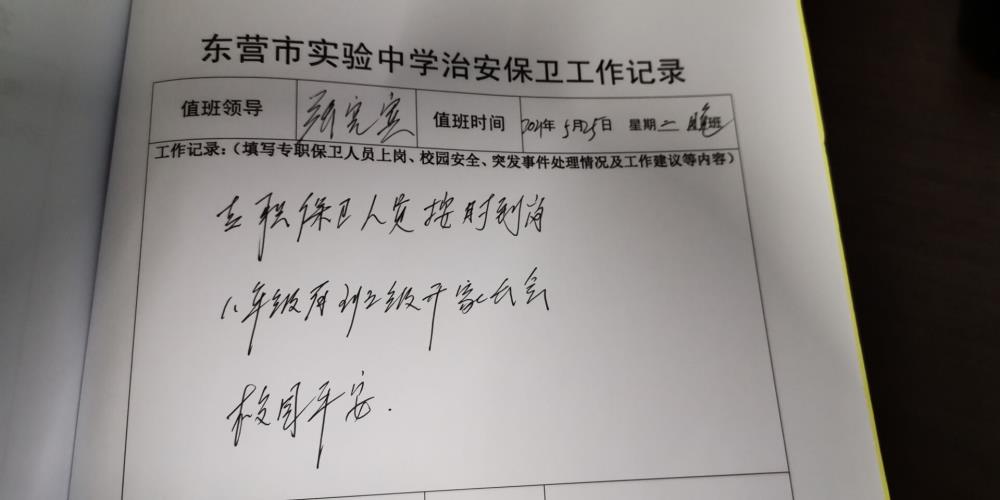 东营市实验中学治安保卫工作记录
值班领导 值班时间 2021年5月25日 星期二 晚班
工作记录:(填写专职保卫人员上岗、校园安全、突发事件处理情况及工作建议等内容)
专职保卫人员按时到岗
八年级有班级开家长会
校园平安.